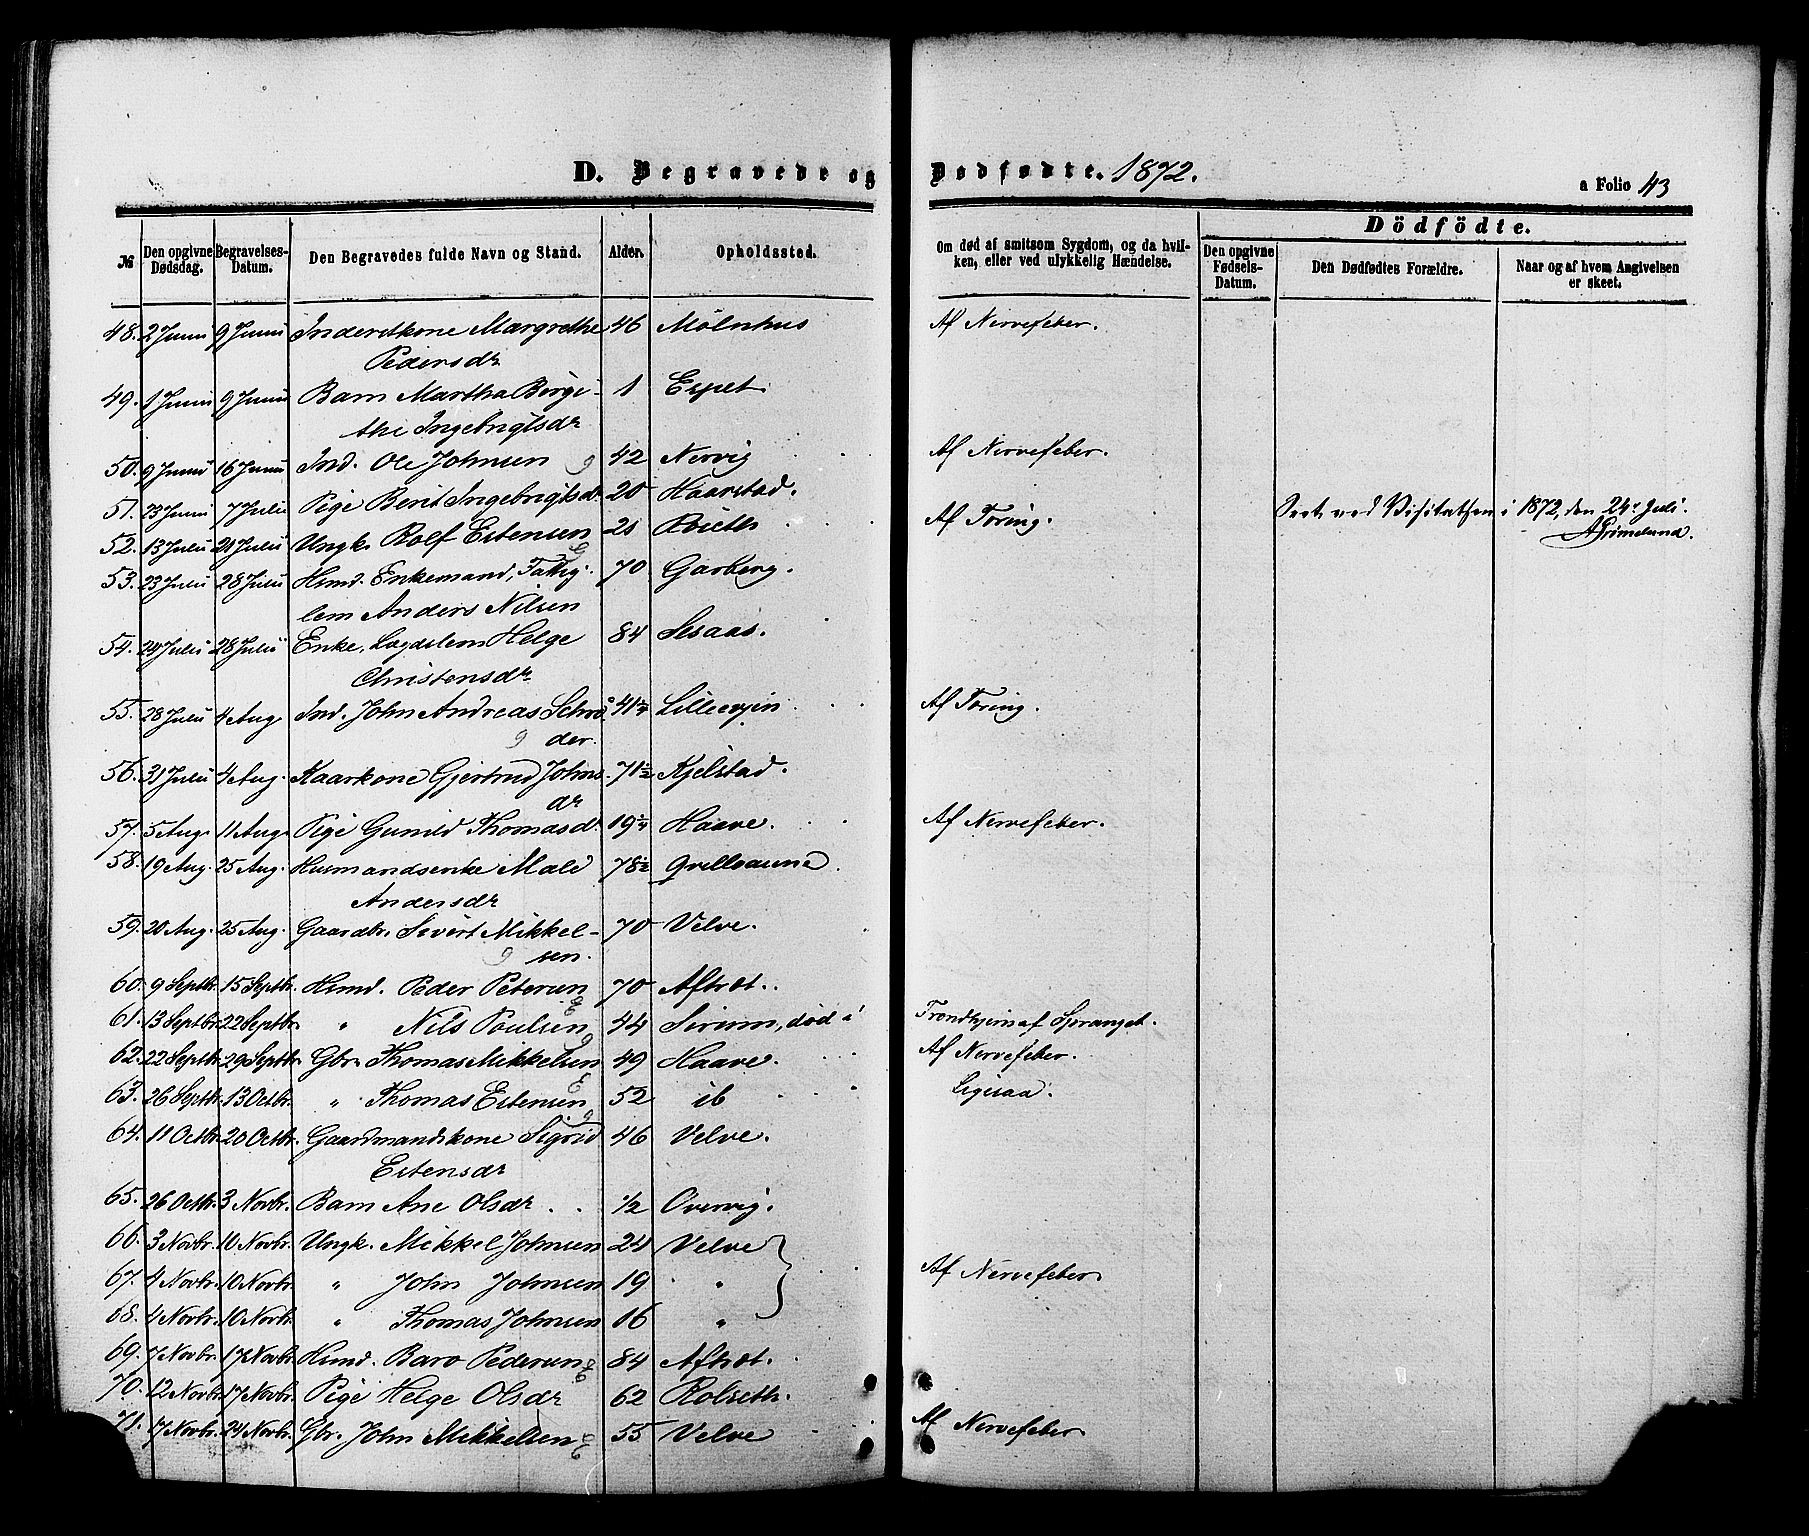 D. Begravede og Dødfødte. 1872.
a Folio 43
№ Den opgivne Dødsdag. Begravelses-Datum. Den Begravedes fulde Navn og Stand. Alder. Opholdssted. Om død af smitsom Sygdom, og da hvilken, eller ved ulykkelig Hændelse. Dödfödte. Den opgivne Fødsels-Datum. Den Dødfødtes Forældre. Naar og af hvem Angivelsen er skeet.
48. 2 Juni 9 Juni Inderstkone Margrethe 46 Mölnhus Af Nervefeber.
Pedersdr
49. 1 Juni 9 Juni Barn Martha Berge- 1 Espet
the Ingebrigtsdr
50. 9 Juni 16 Juni Ind. Ole Johnsen 42 Nervig Af Nervefeber.
51. 23 Juni 7 Juli Pige Berit Ingebrigtsd. 20 Haarstad.
Seet ved Visitatsen i 1872, den 24de Juli.
AGrimelund.
52. 13 Juli 21 Juli Ungk. Rolf Estensen 21 Af Tæring.
53. 23 Juli 28 Juli Husmd. Enkemand, Fattig- 70 Garberg.
lem Anders Nilsen
54. 24 Juli 28 Juli Enke, Lægdslem Helge 84 Sesaas.
Christensdr
55. 28 Juli 4 Aug. Ind. John Andreas Schrø 41 3/4 Lilleevjen Af Tæring.
der.
56. 31 Juli 4 Aug. Kaarkone Gjertrud Johns 71 1/2 Kjelstad.
dr
57. 5 Aug. 11 Aug. Pige Gunild Thomasd. 19 3/4 Haave. Af Nervefeber.
58. 19 Aug. 25 Aug. Husmandsenke Mali 78 1/2
Andersdr
59. 20 Aug. 25 Aug. Gaardbr. Sivert Mikkel- 70 Velve.
sen.
60. 9 Septbr. 15 Septbr. Husmd. Peder Petersen 70 Aftret.
61. 13 Septbr. 22 Septbr. " Nils Poulsen 44 Sirum, död i Trondhjem af
62. 22 Septbr. 29 Septbr. Gbr. Thomas Mikkelsen 49 Haave. Af Nervefeber.
63. 26 Septbr. 13 Octbr. " Thomas Estensen 52 ib Ligesaa.
64. 11 Octbr. 20 Octbr. Gaardmandskone Sigrid 46 Velve.
Estensdr
65. 26 Octbr. 3 Novbr. Barn Ane Olsdr 1/2 Overvig.
66. 3 Novbr. 10 Novbr. Ungk. Mikkel Johnsen 24 Velve
67. 4 Novbr. 10 Novbr. " John Johnsen 19 " Af Nervefeber
68. 4 Novbr. 10 Novbr. " Thomas Johnsen 16 "
69. 7 Novbr. 17 Novbr. Husmd. Baro Pedersen 84 Aftret.
70. 12 Novbr. 17 Novbr. Pige Helge Olsdr 62 Rolseth.
71. 17 Novbr. 24 Novbr. Gbr. John Mikkelsen 55 Velve Af Nervefeber